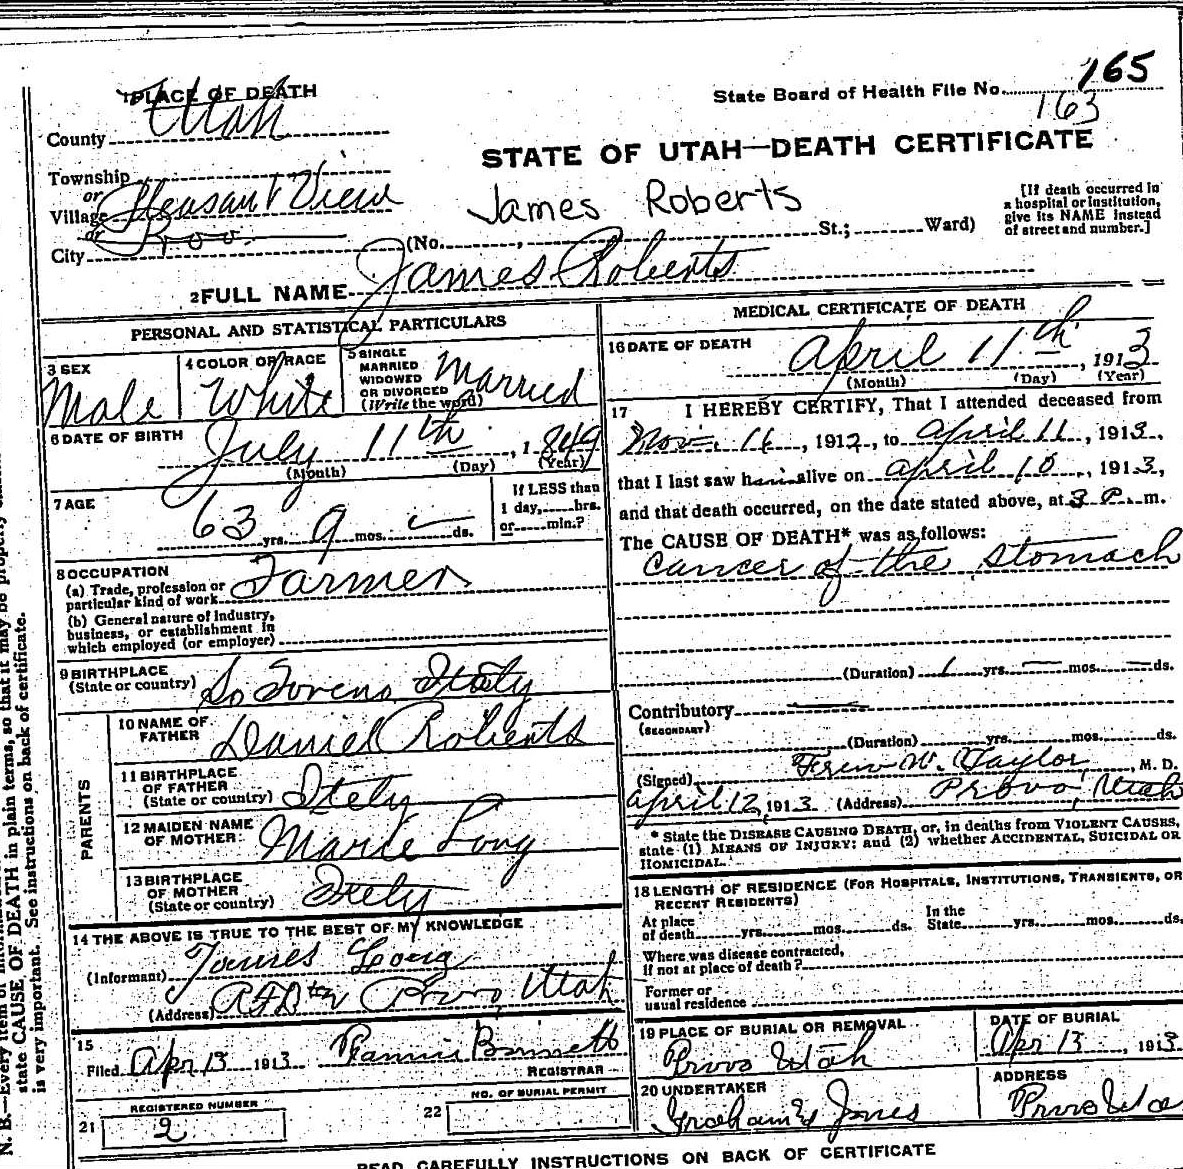 1 PLACE OF DEATH
State Board of Health File No. 165
163
County Utah
STATE OF UTAH—DEATH CERTIFICATE
Township
or
Village Pleasant View
or
City Provo
James Roberts
(No. , St.; Ward)
[If death occurred in
a hospital or institution,
give its NAME instead
of street and number.]
2 FULL NAME James Roberts
PERSONAL AND STATISTICAL PARTICULARS
3 SEX
Male
4 COLOR OR RACE
White
5 SINGLE
MARRIED
WIDOWED
OR DIVORCED
(Write the word)
Married
6 DATE OF BIRTH
July 11th, 1849
(Month) (Day) (Year)
7 AGE
63 yrs. 9 mos. — ds.
If LESS than
1 day, hrs.
or min.?
8 OCCUPATION
(a) Trade, profession or
particular kind of work Farmer
(b) General nature of industry,
business, or establishment in
which employed (or employer)
9 BIRTHPLACE
(State or country)
PARENTS
10 NAME OF
FATHER
Daniel Roberts
11 BIRTHPLACE
OF FATHER
(State or country) Itely
12 MAIDEN NAME
OF MOTHER Marie Long
13 BIRTHPLACE
OF MOTHER
(State or country) Itely
14 THE ABOVE IS TRUE TO THE BEST OF MY KNOWLEDGE
(Informant) James Long
(Address) Provo, Utah
15
Filed Apr 13 1913
REGISTRAR
REGISTERED NUMBER
21 2
NO. OF BURIAL PERMIT
22
MEDICAL CERTIFICATE OF DEATH
16 DATE OF DEATH
April 11th, 1913
(Month) (Day) (Year)
17 I HEREBY CERTIFY, That I attended deceased from
Nov. 16, 1912, to April 11, 1913,
that I last saw him alive on April 10, 1913,
and that death occurred, on the date stated above, at 3 P. m.
The CAUSE OF DEATH* was as follows:
Cancer of the Stomach
(Duration) 1 yrs. — mos. — ds.
Contributory —
(SECONDARY)
(Duration) yrs. mos. ds.
(Signed) W. Taylor, M. D.
April 12, 1913 (Address) Provo, Utah
* State the DISEASE CAUSING DEATH, or, in deaths from VIOLENT CAUSES,
state (1) MEANS OF INJURY; and (2) whether ACCIDENTAL, SUICIDAL OR
HOMICIDAL.
18 LENGTH OF RESIDENCE (FOR HOSPITALS, INSTITUTIONS, TRANSIENTS, OR
RECENT RESIDENTS)
At place
of death yrs. mos. ds.
In the
State yrs. mos. ds.
Where was disease contracted,
if not at place of death?
Former or
usual residence
19 PLACE OF BURIAL OR REMOVAL
Provo Utah
DATE OF BURIAL
Apr 13, 1913
20 UNDERTAKER
Jones
ADDRESS
Provo
READ CAREFULLY INSTRUCTIONS ON BACK OF CERTIFICATE
N. B.—Every item of
state CAUSE OF DEATH in plain terms, so that it may be properly
is very important. See instructions on back of certificate.